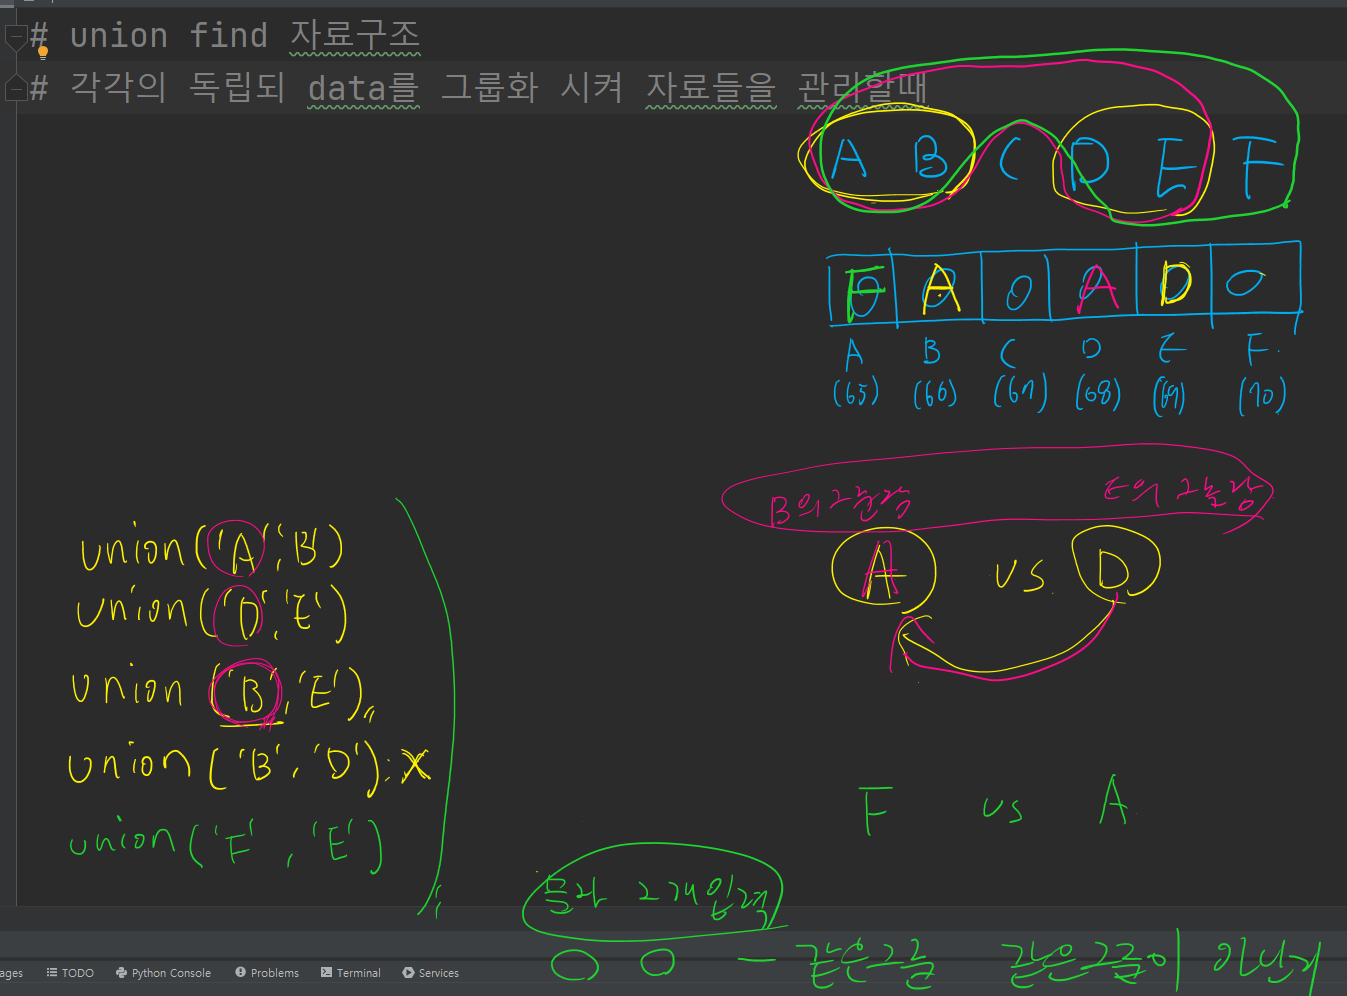 # union find 자료구조
# 각각의 독립되 data를 그룹화 시켜 자료들을 관리할때
A B C D E F
F A 0 A D 0
A B C D E F
(65) (66) (67) (68) (69) (70)
B의 그룹장 E의 그룹장
A vs D
union('A','B')
union('D','E')
union('B','E')
union('B','D'); X
union('F','E')
F vs A
문자 2개 입력
같은그룹 같은그룹이 아니
ages TODO Python Console Problems Terminal Services